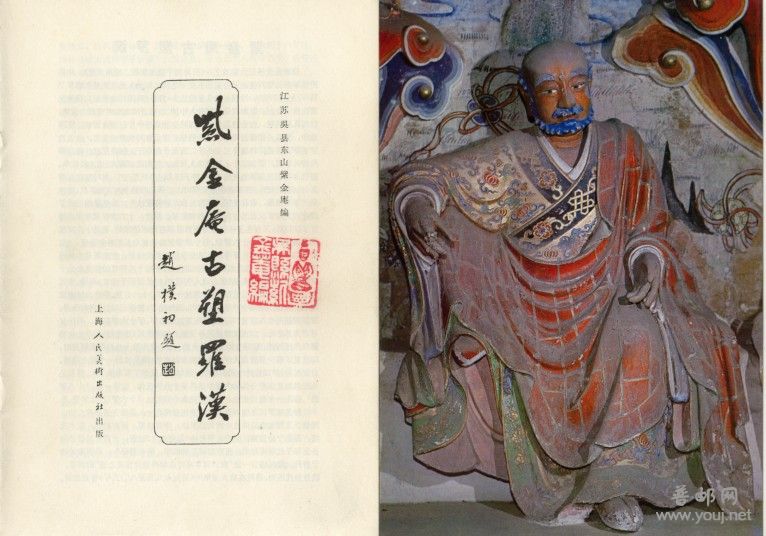 江苏吴县东山紫金庵编
紫金庵古塑羅漢
趙樸初題
上海人民美術出版社出版
善邮网
www.youj.net